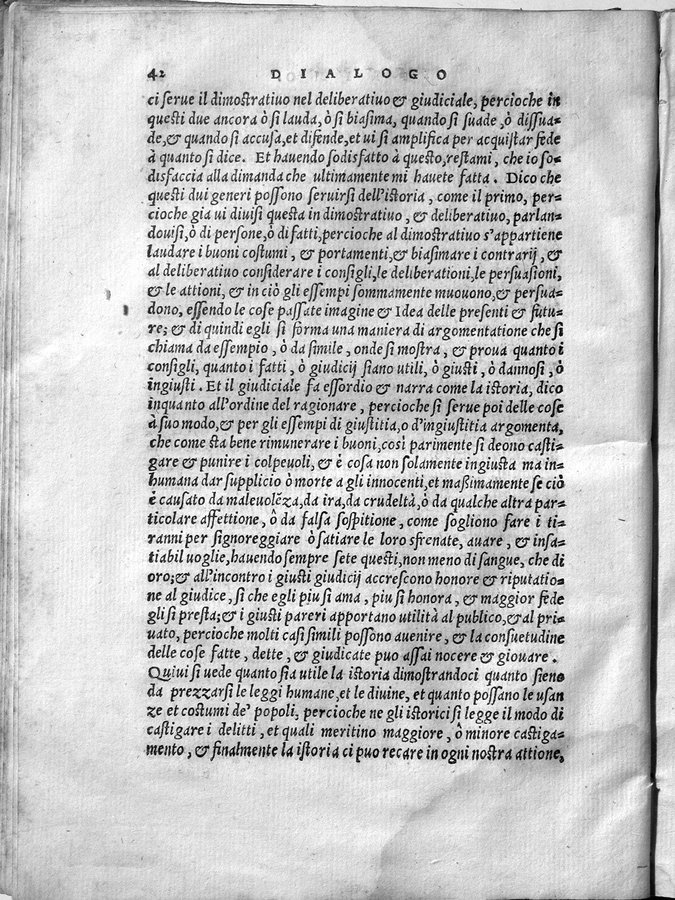 42 DIALOGO
ci serue il dimostratiuo nel deliberatiuo & giudiciale, percioche in
questi due ancora ò si lauda, ò si biasima, quando si suade, ò dissua-
de, & quando si accusa, et difende, et ui si amplifica per acquistar fede
à quanto si dice. Et hauendo sodisfatto à questo, restami, che io so-
disfaccia alla dimanda che ultimamente mi hauete fatta. Dico che
questi dui generi possono seruirsi dell'istoria, come il primo, per-
cioche gia ui diuisi questa in dimostratiuo, & deliberatiuo, parlan-
douisi, ò di persone, ò di fatti, percioche al dimostratiuo s'appartiene
laudare i buoni costumi, & portamenti, & biasimare i contrarij, &
al deliberatiuo considerare i consigli, le deliberationi, le persuasioni,
& le attioni, & in ciò gli essempi sommamente muouono, & persua-
dono, essendo le cose passate imagine & Idea delle presenti & futu-
re; & di quindi egli si forma una maniera di argomentatione che si
chiama da essempio, ò da simile, onde si mostra, & proua quanto i
consigli, quanto i fatti, ò giudicij siano utili, ò giusti, ò dannosi, ò
ingiusti. Et il giudiciale fa essordio & narra come la istoria, dico
inquanto all'ordine del ragionare, percioche si serue poi delle cose
à suo modo, & per gli essempi di giustitia, o d'ingiustitia argomenta,
che come sta bene rimunerare i buoni, così parimente si deono casti-
gare & punire i colpeuoli, & è cosa non solamente ingiusta ma in-
humana dar supplicio ò morte a gli innocenti, et maßimamente se ciò
è causato da maleuolẽza, da ira, da crudeltà, ò da qualche altra par-
ticolare affettione, ô da falsa sospitione, come sogliono fare i ti-
ranni per signoreggiare ò satiare le loro sfrenate, auare, & insa-
tiabil uoglie, hauendo sempre sete questi, non meno di sangue, che di
oro; & all'incontro i giusti giudicij accrescono honore & riputatio-
ne al giudice, si che egli piu si ama, piu si honora, & maggior fede
gli si presta; & i giusti pareri apportano utilità al publico, & al pri-
uato, percioche molti casi simili possono auenire, & la consuetudine
delle cose fatte, dette, & giudicate puo assai nocere & giouare.
Quiui si uede quanto sia utile la istoria dimostrandoci quanto sieno
da prezzarsi le leggi humane, et le diuine, et quanto possano le usan
ze et costumi de' popoli, percioche ne gli istorici si legge il modo di
castigare i delitti, et quali meritino maggiore, ô minore castiga-
mento, & finalmente la istoria ci puo recare in ogni nostra attione,